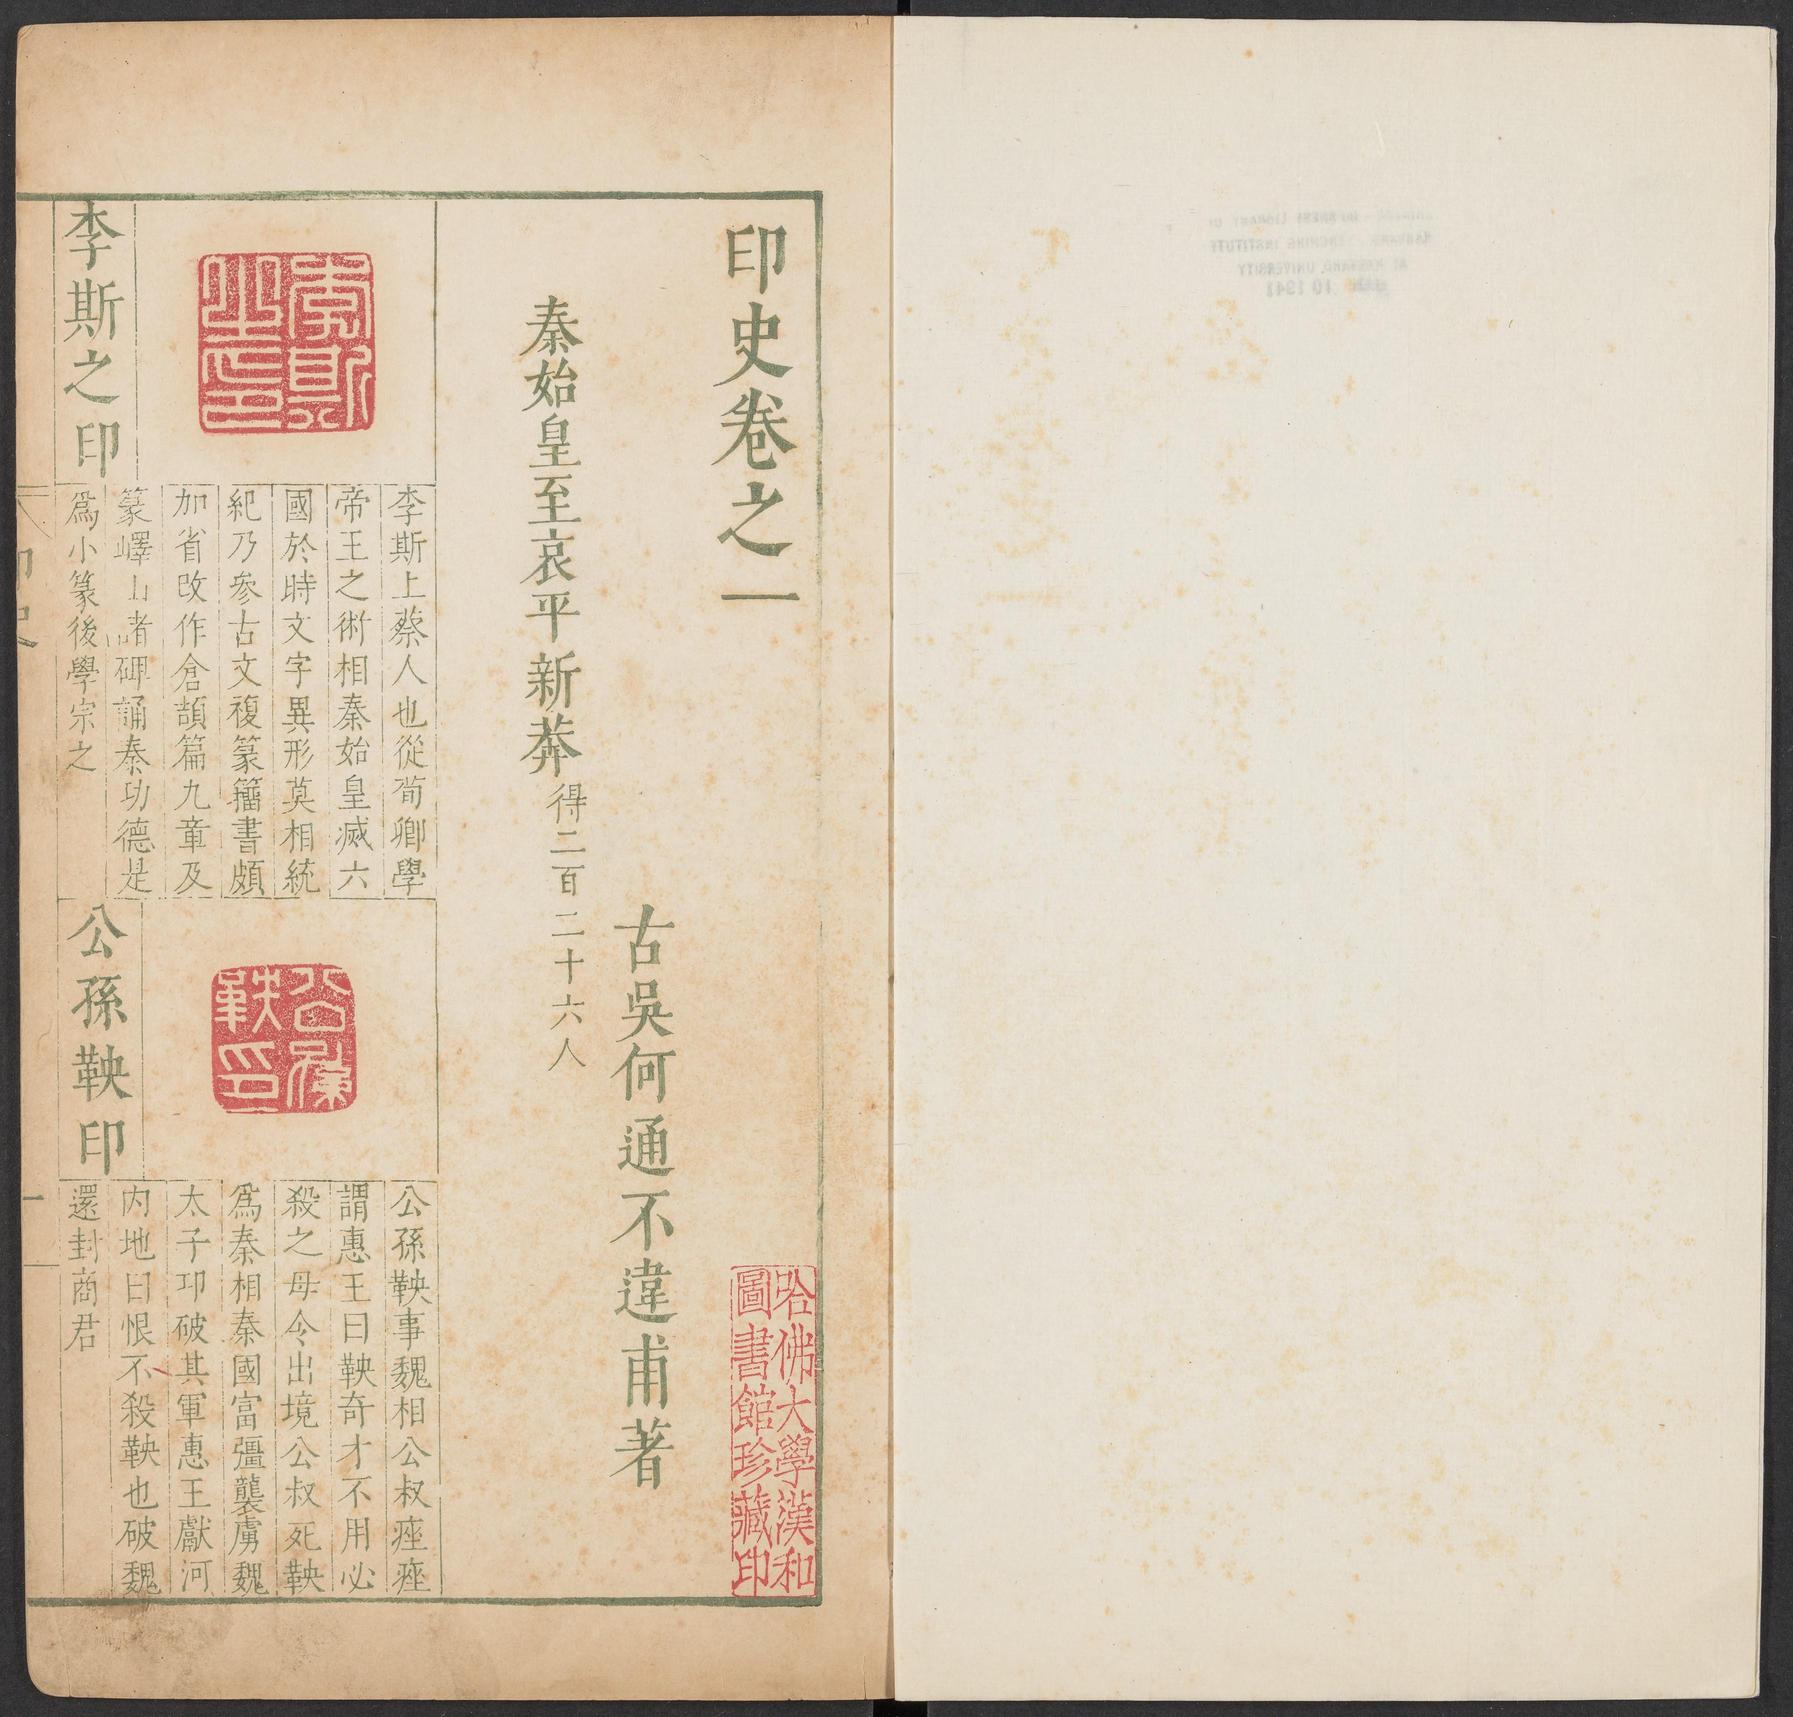 印史卷之一
古吳何通不違甫著
秦始皇至哀平 新莽 得二百二十六人
哈佛大學漢和
圖書館珍藏印
李斯之印
李斯上蔡人也從荀卿學
帝王之術相秦始皇滅六
國於時文字異形莫相統
紀乃參古文複篆籀書頗
加省改作倉頡篇九章及
篆嶧山諸碑誦秦功德是
爲小篆後學宗之
李斯之印
公孫鞅印
公孫鞅事魏相公叔痤痤
謂惠王曰鞅奇才不用必
殺之毋令出境公叔死鞅
爲秦相秦國富彊襲虜魏
太子卬破其軍惠王獻河
內地曰恨不殺鞅也破魏
還封商君
公孫鞅印
印史
一